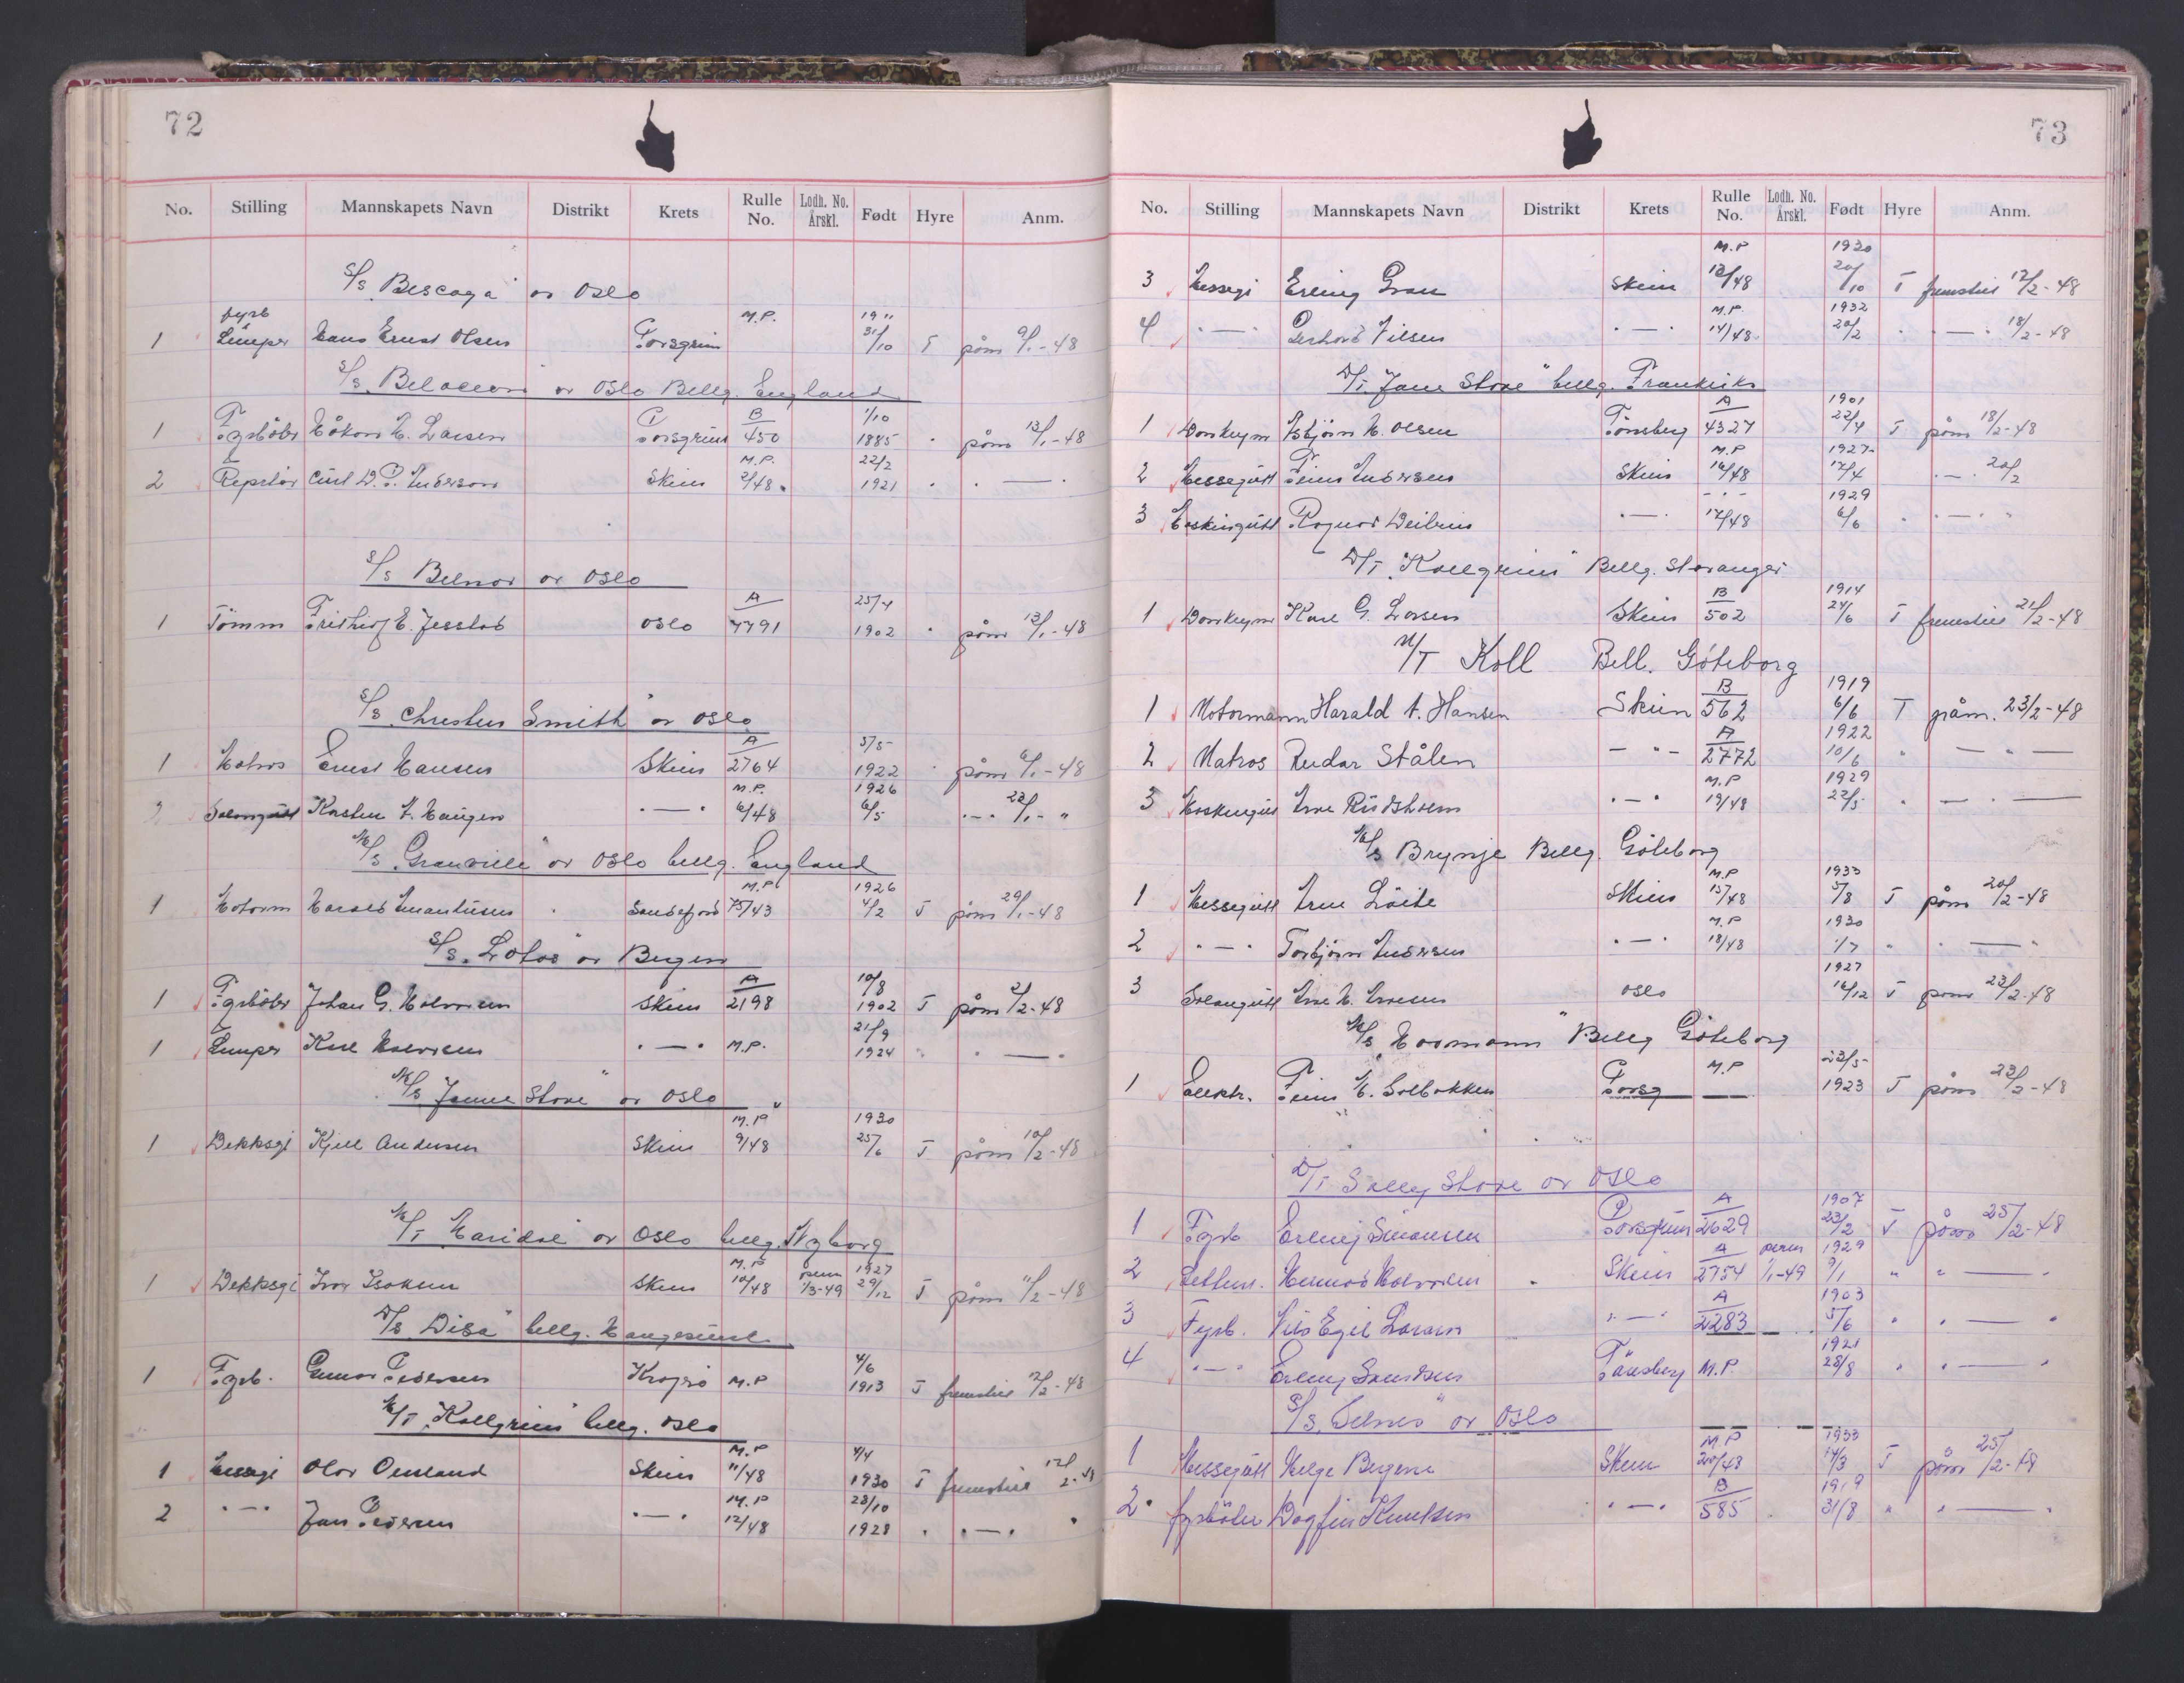 72
No. Stilling Mannskapets Navn Distrikt Krets Rulle No. Lodh. No. Årskl. Født Hyre Anm.
S/S "Biscaya" av Oslo
fyrb M.P. 19"
1 Lemper Hans Ernst Olsen Porsgrunn 31/10 T påm 9/1-48
S/S av Oslo Bellg. England
1 Fyrbøter Håkon M. Larsen Porsgrunn B 450 1/10 1885 " påm 13/1-48
2 Reprtør Curt D. P. Anderson Skien M.P. 2/48 22/2 1921 " " — "
S/S Belnor av Oslo
1 Tømm Frithiof E. Oslo A 25/4 1902 " påm 13/1-48
S/S "Christen Smith" av Oslo
1 Matros Ernst Hansen Skien A 2764 5/5 1922 " påm 6/1-48
2 Salongutt Karsten A. Haugen " — " M.P. 6/48 1926 6/5 " — " 22/1 - "
M/S "Granville" av Oslo bellg. England
1 Motorm Harald Sandefjord M.P. 75/43 1926 4/2 T påm 29/1-48
S/S "Lotos" av Bergen
1 Fyrbøter Johan G. Halvorsen Skien A 2198 10/8 1902 T påm 2/2-48
1 Lemper Karl Halvorsen " — " M.P. 21/9 1924 " " — "
M/S "Janna Stove" av Oslo
1 Dekksgt Kjell Andersen Skien M.P. 9/48 1930 25/6 T påm 10/2-48
M/T "Haridal" av Oslo bellg. Nyborg
1 Dekksgt Ivar Isaksen Skien M.P. 10/48 perm 1/3-49 1927 29/12 T påm 11/2-48
D/S "Disa" bellg. Haugesund
1 Fyrb. Gunnar Pedersen Kragerø M.P 4/6 1913 T fremstill 12/2-48
M/T "Kollgrim" bellg. Oslo
1 Messegt Olav Omland Skien M.P 11/48 4/4 1930 T fremstill 12/2-48
2 " — " Jan Pedersen " — " M.P 12/48 28/10 1928 " " — " "
73
No. Stilling Mannskapets Navn Distrikt Krets Rulle No. Lodh. No. Årskl. Født Hyre Anm.
3 Messegt Erling Gran Skien M.P 13/48 1930 20/10 T fremstill 17/2-48
4 " — " Gerhard Nilsen " — " M.P. 14/48 1932 20/2 " " — " 18/2-48
D/T "Janna Stove" bellg. Frankrike
1 Donkeym Asbjørn M. Olsen Tønsberg A 4327 1901 22/4 T påm 18/2-48
2 Messegutt Finn Andersen Skien M.P 16/48 1927 17/4 " — " 20/2
3 Maskingutt Ragnar " — " " — " 17/48 1929 6/6 " " — " "
D/T "Kollgrim" Bellg. Stavanger
1 Donkeym Karl G. Larsen Skien B 502 1914 24/6 T fremstill 21/2-48
M/T Koll Bell. Göteborg
1 Motormann Harald A. Hansen Skien B 562 1919 6/6 T påm. 23/2-48
2 Matros Reidar Stålen — " — A 2772 1922 10/6 " — " —
3 Maskingutt Arne " — " M.P 19/48 1929 22/5 " — " —
M/S Brynje Bellg. Göteborg
1 Messegutt Arne Løite Skien M.P 15/48 1933 5/8 T påm 20/2-48
2 " — " Torbjørn Andersen " — " M.P 18/48 1930 1/7 " " — "
3 Salongutt Arne M. Oslo 1927 16/12 T påm 23/2-48
M/S "Havmann" Bellg Göteborg
1 Elektr. Finn M. Solbakken Porsg M.P — 23/5 1923 T påm 23/2-48
D/T Sally Stove av Oslo
1 Fyrb Erling Simonsen Porsgrunn A 2629 1907 23/2 T påm 25/2-48
2 Lettm. Halvorsen Skien A 2754 perm 1/1-49 1929 9/1 " " — "
3 Fyrb. Nils Egil Larsen " — " A 2283 1903 5/6 " " — "
4 " — " Erling Tønsberg M.P. 1921 28/8 " " — "
S/S "Selnes" av Oslo
1 Messegutt Helge Skien M.P 20/48 1933 14/3 T påm 25/2-48
2 fyrbøter Dagfin Knutsen " — " B 585 1919 31/8 " " — "